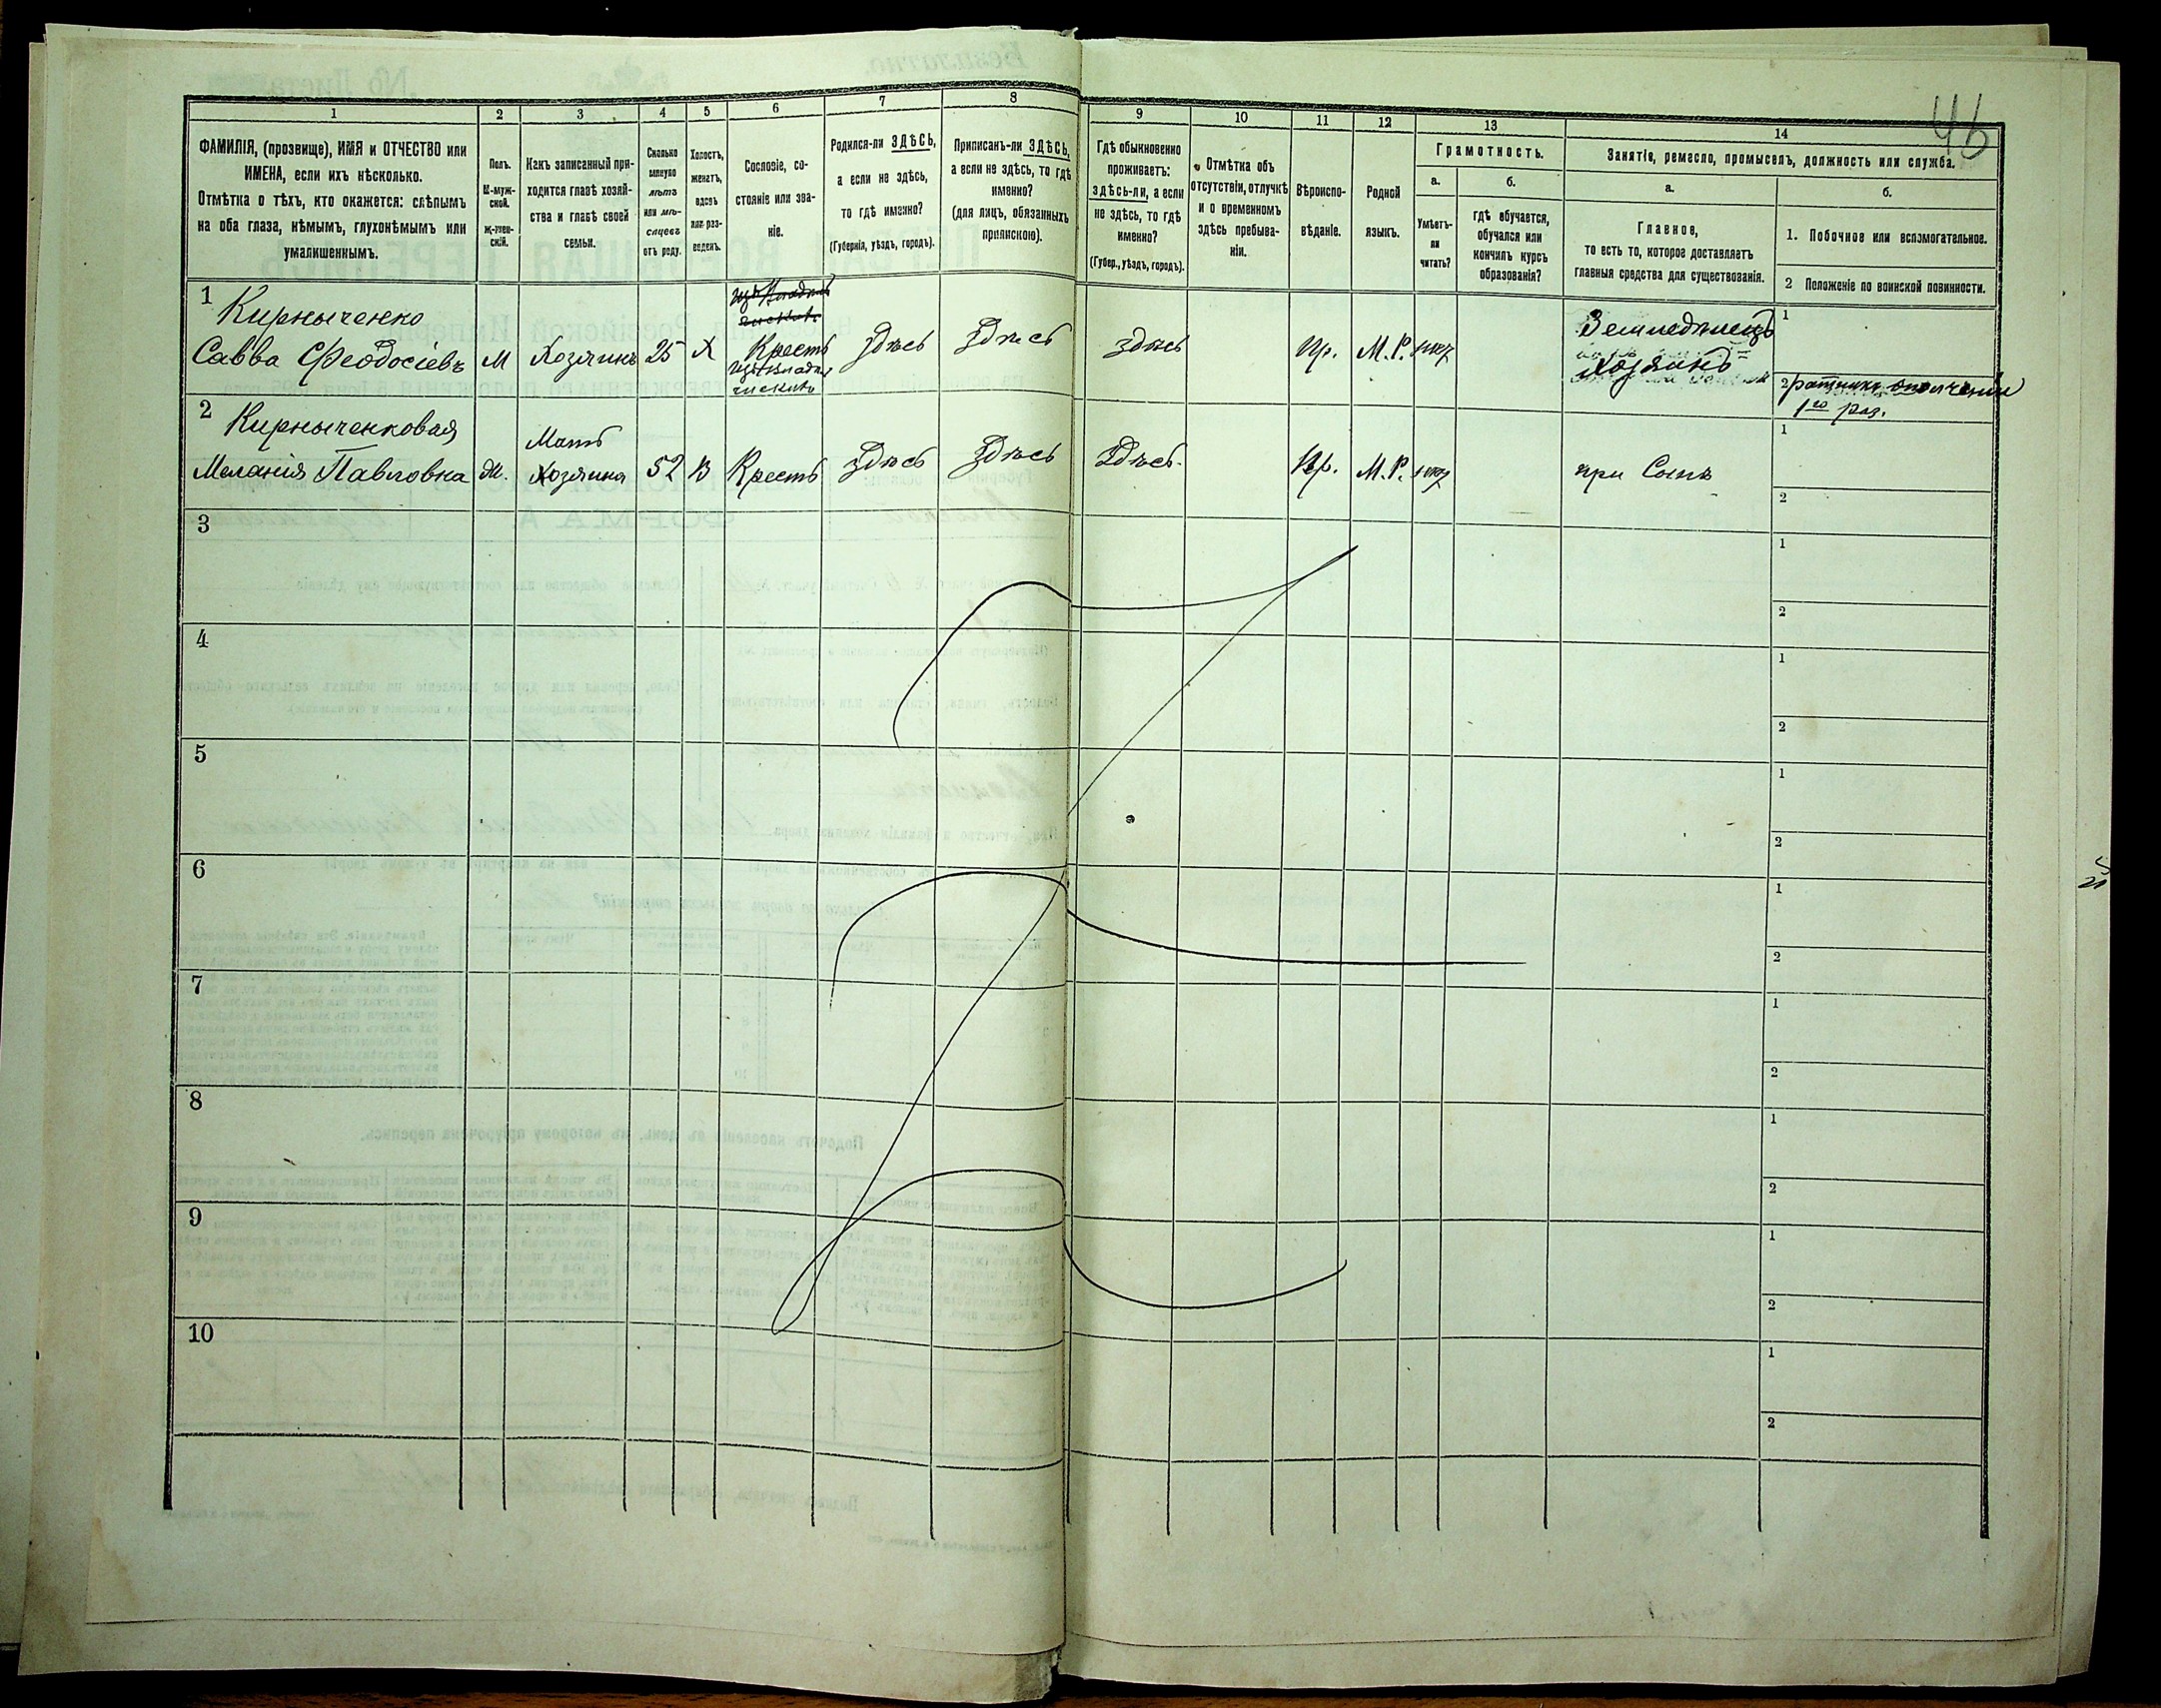 46
1
2
3
4
5
6
7
8
9
10
11
12
13
14
ФАМИЛІЯ, (прозвище), ИМЯ и ОТЧЕСТВО или
ИМЕНА, если ихъ нѣсколько.
Отмѣтка о тѣхъ, кто окажется: слѣпымъ
на оба глаза, нѣмымъ, глухонѣмымъ или
умалишеннымъ.
Полъ.
М-муж-
ской.
Ж-жен-
скій.
Какъ записанный при-
ходится главѣ хозяй-
ства и главѣ своей
семьи.
Сколько
минуло
лѣтъ
или мѣ-
сяцевъ
отъ роду.
Холостъ,
женатъ,
вдовъ
или раз-
веденъ.
Сословіе, со-
стояніе или зва-
ніе.
Родился-ли ЗДѢСЬ,
а если не здѣсь,
то гдѣ именно?
(Губернія, уѣздъ, городъ).
Приписанъ-ли ЗДѢСЬ,
а если не здѣсь, то гдѣ
именно?
(для лицъ, обязанныхъ
припискою).
Гдѣ обыкновенно
проживаетъ:
здѣсь-ли, а если
не здѣсь, то гдѣ
именно?
(Губер., уѣздъ, городъ).
Отмѣтка объ
отсутствіи, отлучкѣ
и о временномъ
здѣсь пребыва-
ніи.
Вѣроиспо-
вѣданіе.
Родной
языкъ.
Грамотность.
а.
Умѣетъ-
ли
читать?
б.
гдѣ обучается,
обучался или
кончилъ курсъ
образованія?
Занятіе, ремесло, промыселъ, должность или служба.
а.
Главное,
то есть то, которое доставляетъ
главныя средства для существованія.
б.
1. Побочное или вспомогательное.
2 Положеніе по воинской повинности.
1
Кирныченко
Савва Феодосіевъ
М
Хозяинъ
25
Х
Крестъ
здѣсь
Здѣсь
здѣсь
Пр.
М.Р.
нѣтъ
Земледѣлецъ
Хозяинъ
1
2 ратникъ ополченія
1го раз.
2
Кирныченковая
Меланія Павловка
Ж.
Мать
Хозяина
52
В
Крестъ
Здѣсь
Здѣсь
Здѣсь.
Пр.
М.Р.
нѣтъ
при Сынѣ
1
2
3
1
2
4
1
2
5
1
2
6
1
2
7
1
2
8
1
2
9
1
2
10
1
2